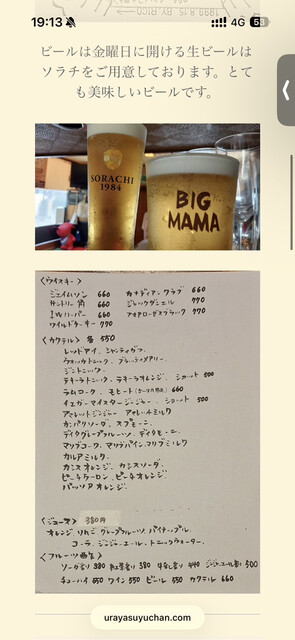 19:13
4G
ビールは金曜日に開ける生ビールは
ソラチをご用意しております。とて
も美味しいビールです。
SORACHI
1984
BIG
MAMA
〈ウイスキー〉
ジェイムソン 660 カナディアンクラブ 660
サントリー角 660 ジャックダニエル 770
I.W.ハーパー 660 フォアローゼスブラック 770
ワイルドターキー 770
〈カクテル〉 各 550
レッドアイ、シャンディガフ、
ウォッカトニック、ブラッディメアリー、
ジントニック、
テキーラトニック、テキーラオレンジ、ショット 500
ラムコーク、モヒート 660
イエガーマイスタージンジャー、ショット 500
アマレットジンジャー アマレットミルク
カンパリソーダ、スプモーニ、
ディタグレープフルーツ、ディタモーニ、
マリブコーク、マリブパイン、マリブミルク
カルアミルク、
カシスオレンジ、カシスソーダ、
ピーチウーロン、ピーチオレンジ、
パッソアオレンジ、
〈ジュース〉 380円
オレンジ りんご グレープフルーツ、パイナップル、
コーラ、ジンジャーエール、トニックウォーター、
〈フルーツ
ソーダ割り 380 割り 380 割り 440 ジンジャーエール割り 500
チューハイ 550 ワイン 550 ビール 550 カクテル 660
urayasuyuchan.com